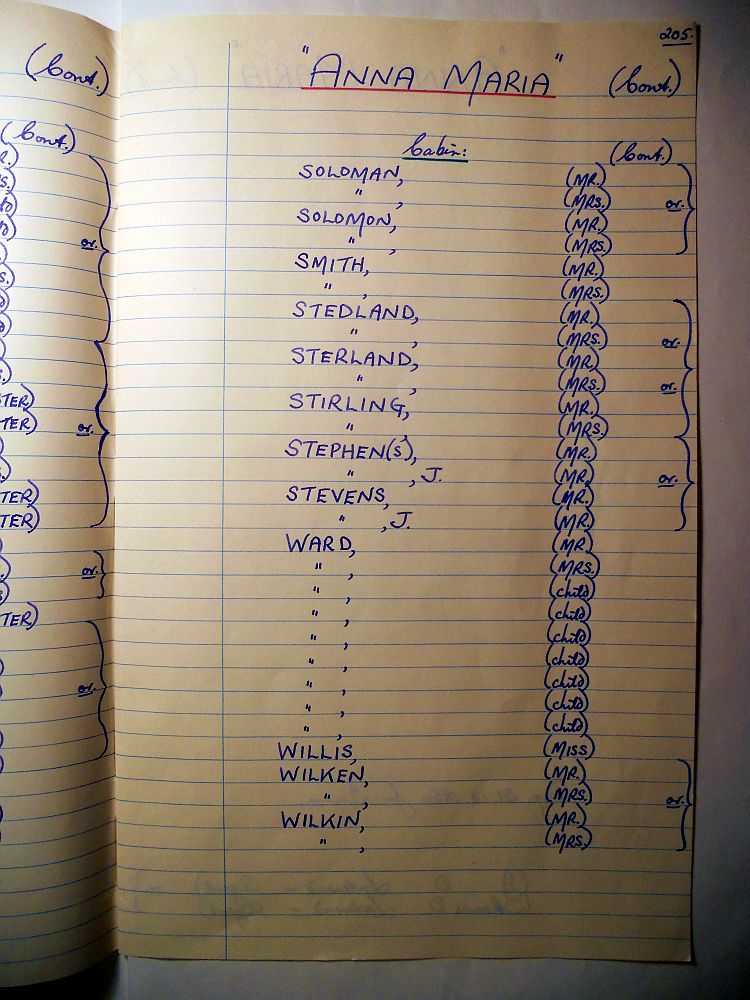 (Cont.)
(Cont.)
R.)
S.)
or.
S.)
TER)
TER)
or.
TER)
TER)
or.
TER)
or.
205.
"ANNA MARIA" (Cont.)
Cabin: (Cont.)
SOLOMAN, (MR.)
" , (MRS.) or.
SOLOMON, (MR.)
" , (MRS.)
SMITH, (MR.)
" , (MRS.)
STEDLAND, (MR.)
" , (MRS.) or.
STERLAND, (MR.)
" , (MRS.) or.
STIRLING, (MR.)
" , (MRS.)
STEPHEN(S), (MR.)
" , J. (MR.) or.
STEVENS, (MR.)
" , J. (MR.)
WARD, (MR.)
" , (MRS.)
" , (child)
" , (child)
" , (child)
" , (child)
" , (child)
" , (child)
" , (child)
WILLIS, (MISS)
WILKEN, (MR.)
" , (MRS.) or.
WILKIN, (MR.)
" , (MRS.)